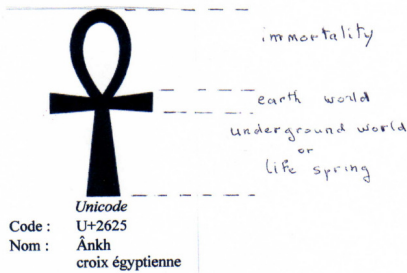 immortality
earth world
underground world
or
life spring
Unicode
Code : U+2625
Nom : Ânkh
croix égyptienne